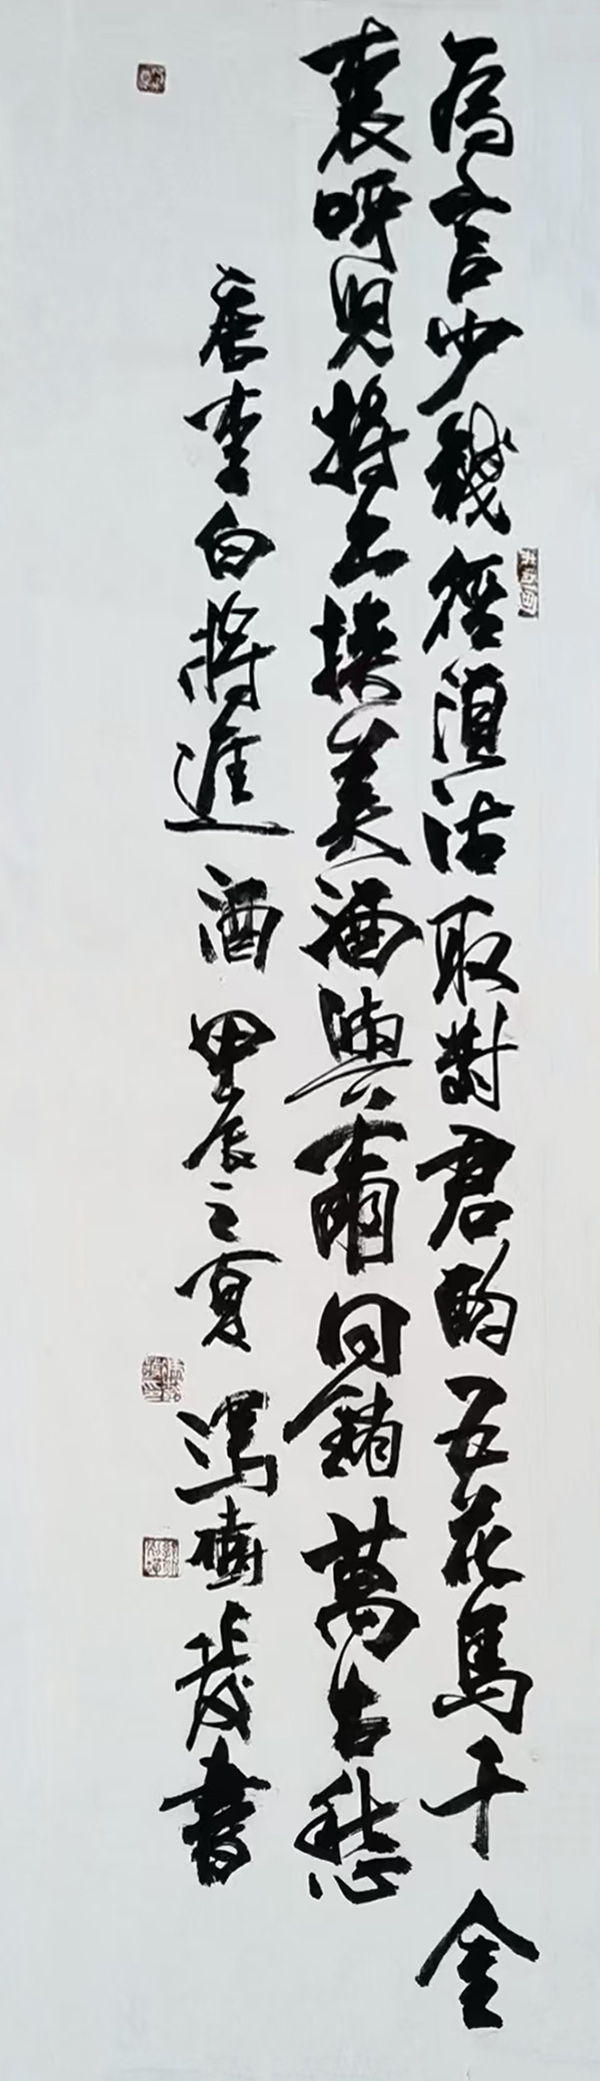 為言少錢徑須沽取對君酌五花馬千金
裘呼兒將出換美酒與爾同銷萬古愁
唐李白將進酒甲辰之夏馮樹茂書